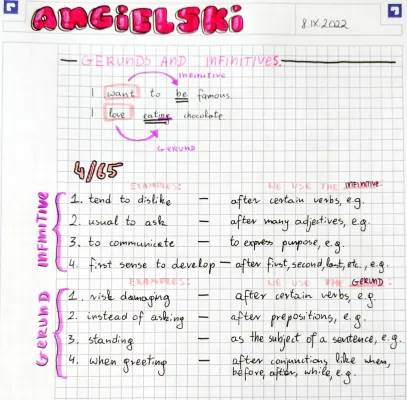 ANGIELSKI
8 IX 2022
GERUNDS AND INFINITIVES.
INFINITIVE
I want to be famous
I love eating chocolate.
GERUND
4/65
EXAMPLES: WE USE THE INFINITIVE:
INFINITIVE
1. tend to dislike — after certain verbs, e.g.
2. usual to ask — after many adjectives, e.g.
3. to communicate — to express purpose, e.g.
4. first sense to develop — after first, second, last, etc., e.g.
EXAMPLES: WE USE THE GERUND:
GERUND
1. risk damaging — after certain verbs, e.g.
2. instead of asking — after prepositions, e.g.
3. standing — as the subject of a sentence, e.g.
4. when greeting — after conjunctions like when,
before, after, while, e.g.